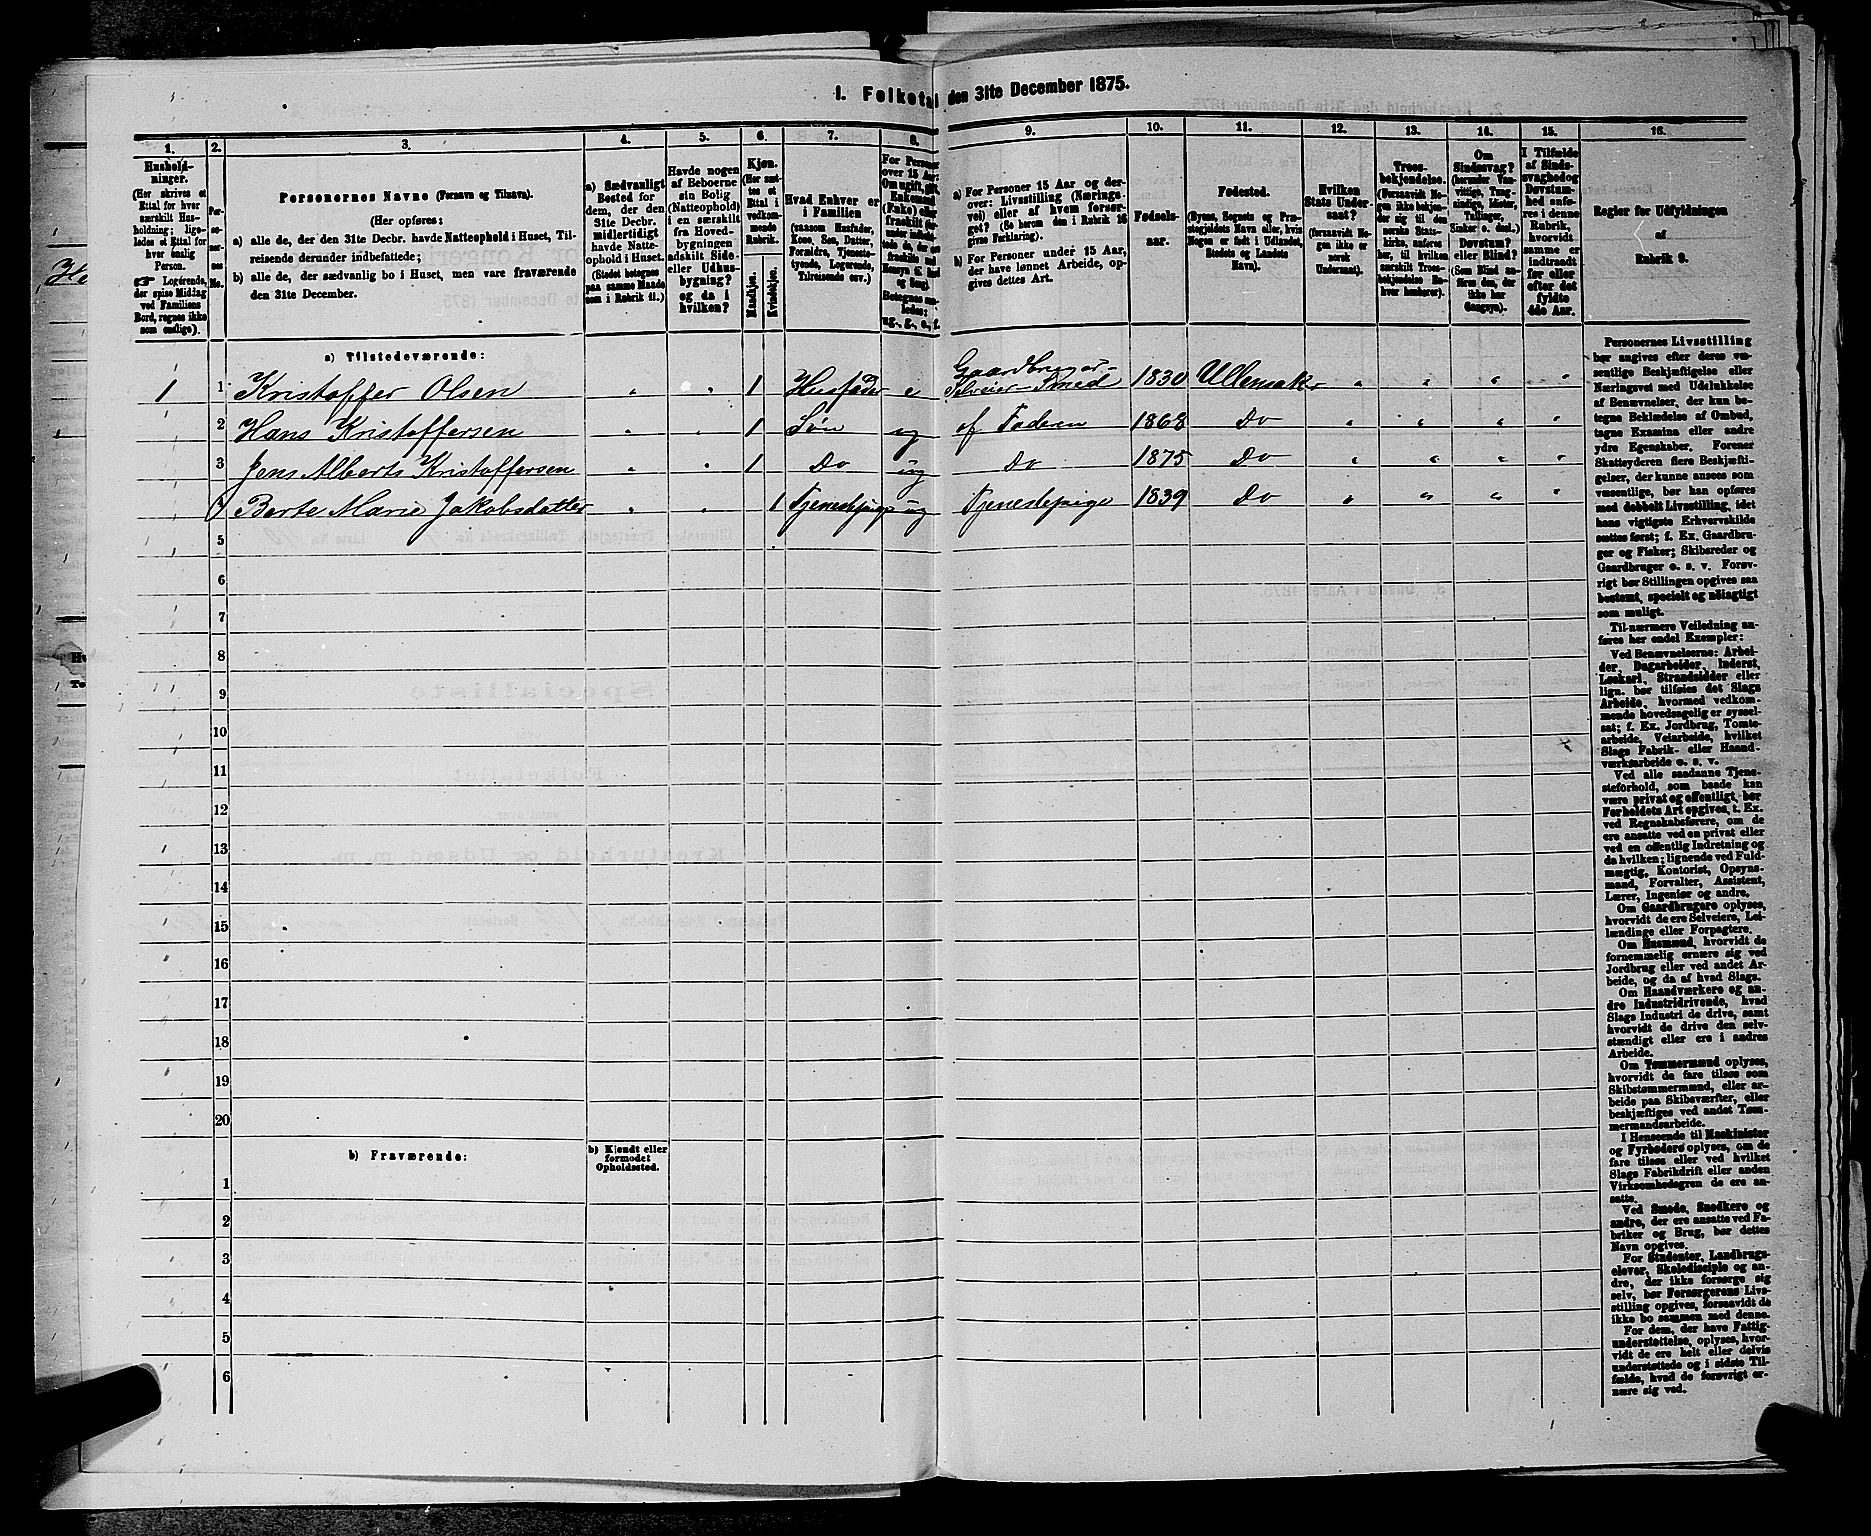 1. Folketal den 31te December 1875.
1. 2. 3. 4. 5. 6. 7. 8. 9. 10. 11. 12. 13. 14. 15. 16.
Hushold-
ninger.
(Her skrives et
Ettal for hver
særskilt Hus-
holdning; lige-
ledes et Ettal for
hver enslig
Person.
☛ Logerende,
der spise Middag
ved Familiens
Bord, regnes ikke
som enslige).
Personernes Navne (Fornavn og Tilnavn).
(Her opføres:
a) alle de, der den 31te Decbr. havde Natteophold i Huset, Til-
reisende derunder indbefattede;
b) alle de, der sædvanlig bo i Huset, men vare fraværende
den 31te December.
a) Sædvanligt
Bosted for
dem, der den
31te Decbr.
midlertidigt
havde Natte-
ophold i Huset.
(Stedet betegnes
paa samme Maade
som i Rubrik 11.)
Havde nogen
af Beboerne
sin Bolig
(Natteophold)
i en særskilt
fra Hoved-
bygningen
adskilt Side-
eller Udhus-
bygning?
og da i
hvilken?
Kjøn.
(Her sæt-
tes et
Ettal i
vedkom-
mende
Rubrik.
Mandkjøn.
Kvindekjøn.
Hvad Enhver er
i Familien
(saasom Husfader,
Kone, Søn, Datter,
Forældre, Tjeneste-
tyende, Logerende,
Tilreisende osv.)
a) For Personer 15 Aar og der-
over: Livsstilling (Nærings-
vei) eller af hvem forsør-
get? (Se herom den i Rubrik 16
givne Forklaring).
b) For Personer under 15 Aar,
der have lønnet Arbeide, op-
gives dettes Art.
Fødsels-
aar.
Fødested.
(Byens, Sognets og Præ-
stegjeldets Navn eller, hvis
Nogen er født i Udlandet,
Stedets og Landets
Navn).
Hvilken
Stats Under-
saat?
(forsaavidt No-
gen ikke er
norsk
Undersaat).
Troes-
bekjendelse.
(Forsaavidt No-
gen ikke bekjen-
der sig til den
norske Stats-
kirke, anføres
her, til hvilken
særskilt Troes-
bekjendelse En-
hver henhører).
Om
Sindssvag?
(herunder Van-
vittige, Tung-
sindige, Idioter,
Tullinger,
Sinker o. desl.)
Døvstum?
eller Blind?
(Som Blind an-
føres den, der
ikke har
Gangsyn).
I Tilfælde
af Sinds-
svaghed og
Døvstum-
hed anfø-
res i denne
Rubrik,
hvorvidt
samme er
indtraadt
før eller
efter det
fyldte
4de Aar.
Regler for Udfyldningen
af
Rubrik 9.
a) Tilstedeværende:
1 1 Kristoffer Olsen „ „ 1 Husfader e Gaardbruger-
Selveier-Smed 1830 Ullensaker „ „ „ „
2 Hans Kristoffersen „ „ 1 Søn ug af Faderen 1868 Do „ „ „ „
3 Jens Alberts Kristoffersen „ „ 1 Do ug Do 1875 Do „ „ „ „
Berte Marie Jakobsdatter „ „ 1 Tjenestepige ug Tjenestepige 1839 Do „ „ „ „
5
6
7
8
9
10
11
12
13
14
15
16
17
18
19
20
b) Fraværende:
b) Kjendt eller
formodet
Opholdssted.
1
2
3
4
5
6
Personernes Livsstilling
bør angives efter deres væ-
sentlige Beskjæftigelse eller
Næringsvei med Udelukkelse
af Benævnelser, der kun be-
tegne Beklædelse af Ombud,
tagne Examina eller andre
ydre Egenskaber. Forener
Skatteyderen flere Beskjæfti-
gelser, der kunne ansees som
væsentlige, bør han opføres
med dobbelt Livsstilling, idet
hans vigtigste Erhvervskilde
sættes først; f. Ex. Gaardbru-
ger og Fisker; Skibsreder og
Gaardbruger o. s. v. Forøv-
rigt bør Stillingen opgives saa
bestemt, specielt og nøiagtigt
som muligt.
Til nærmere Veiledning an-
føres her endel Exempler:
Ved Benævnelserne: Arbei-
der, Dagarbeider, Inderst,
Løskarl, Strandsidder eller
lign. bør tilføies det Slags
Arbeide, hvormed vedkom-
mende hovedsagelig er syssel-
sat; f. Ex. Jordbrug, Tomte-
arbeide, Veiarbeide, hvilket
Slags Fabrik- eller Haand-
værksarbeide o. s. v.
Ved alle saadanne Tjene-
steforhold, som baade kan
være privat og offentligt, bør
Forholdets Art opgives, t. Ex.
ved Regnskabsførere, om de
ere ansatte ved en privat eller
ved en offentlig Indretning og
da hvilken; lignende ved Fuld-
mægtig, Kontorist, Opsyns-
mand, Forvalter, Assistent,
Lærer, Ingeniør og andre.
Om Gaardbrugere oplyses,
hvorvidt de ere Selveiere, Lei-
lændinge eller Forpagtere.
Om Husmænd, hvorvidt de
fornemmelig ernære sig ved
Jordbrug eller ved andet Ar-
beide, og da af hvad Slags.
Om Haandværkere og an-
dre Industridrivende, hvad
Slags Industri de drive, samt
hvorvidt de drive den selv-
stændigt eller ere i andres
Arbeide.
Om Tømmermænd oplyses,
hvorvidt de fare tilsøs som
Skibstømmermænd, eller ar-
beide paa Skibsværfter, eller
beskjæftiges ved andet Tøm-
mermandsarbeide.
I Henseende til Maskinister
og Fyrbødere oplyses, om de
fare tilsøs eller ved hvilket
Slags Fabrikdrift eller anden
Virksomhedsgren de ere an-
satte.
Ved Smede, Snedkere og
andre, der ere ansatte ved Fa-
briker og Brug, bør dettes
Navn opgives.
For Studenter, Landbrugs-
elever, Skoledisciple og an-
dre, der ikke forsørge sig
selv, bør Forsørgerens Livs-
stilling opgives, forsaavidt de
ikke bo sammen med denne.
For dem, der have Fattig-
understøttelse, oplyses, hvor-
vidt de ere helt eller delvis
understøttede og i sidste Til-
fælde, hvad de forøvrigt er-
nære sig ved.